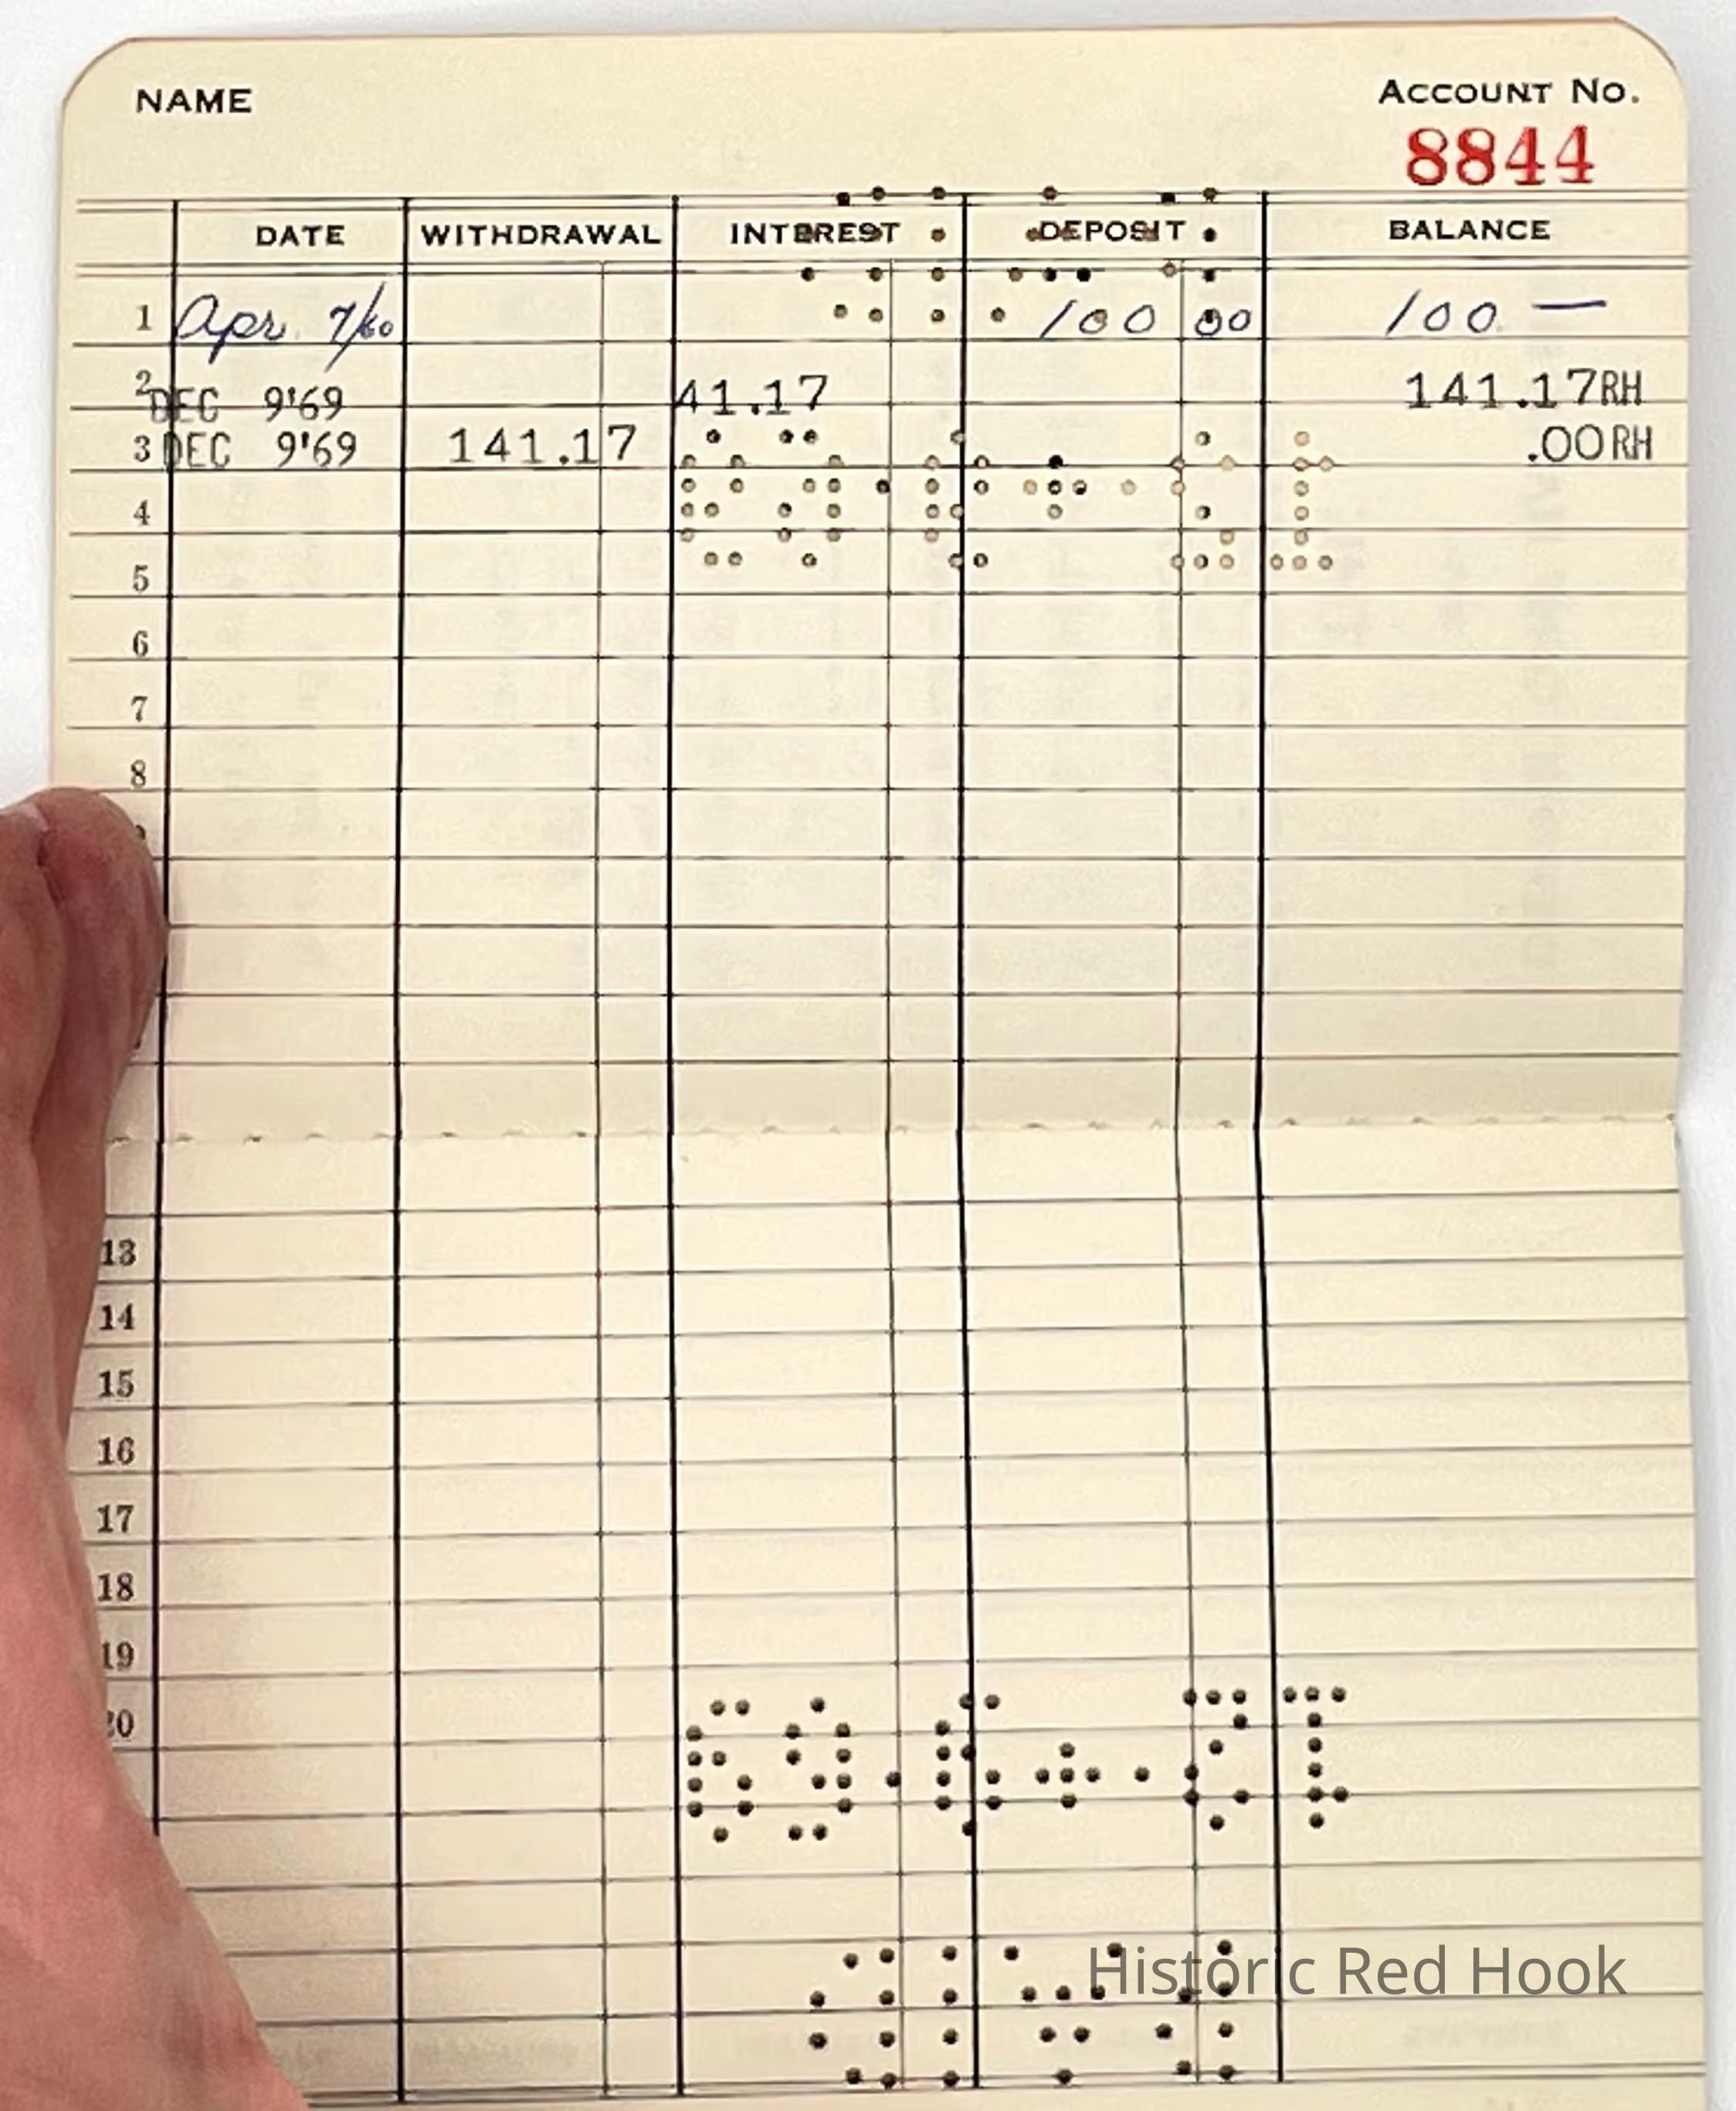 NAME
Account No.
8844
DATE WITHDRAWAL INTEREST DEPOSIT BALANCE
1 Apr. 7/60 100 00 100 —
2 DEC 9'69 41.17 141.17RH
3 DEC 9'69 141.17 .00RH
4
5
6
7
8
13
14
15
16
17
18
19
20
Historic Red Hook